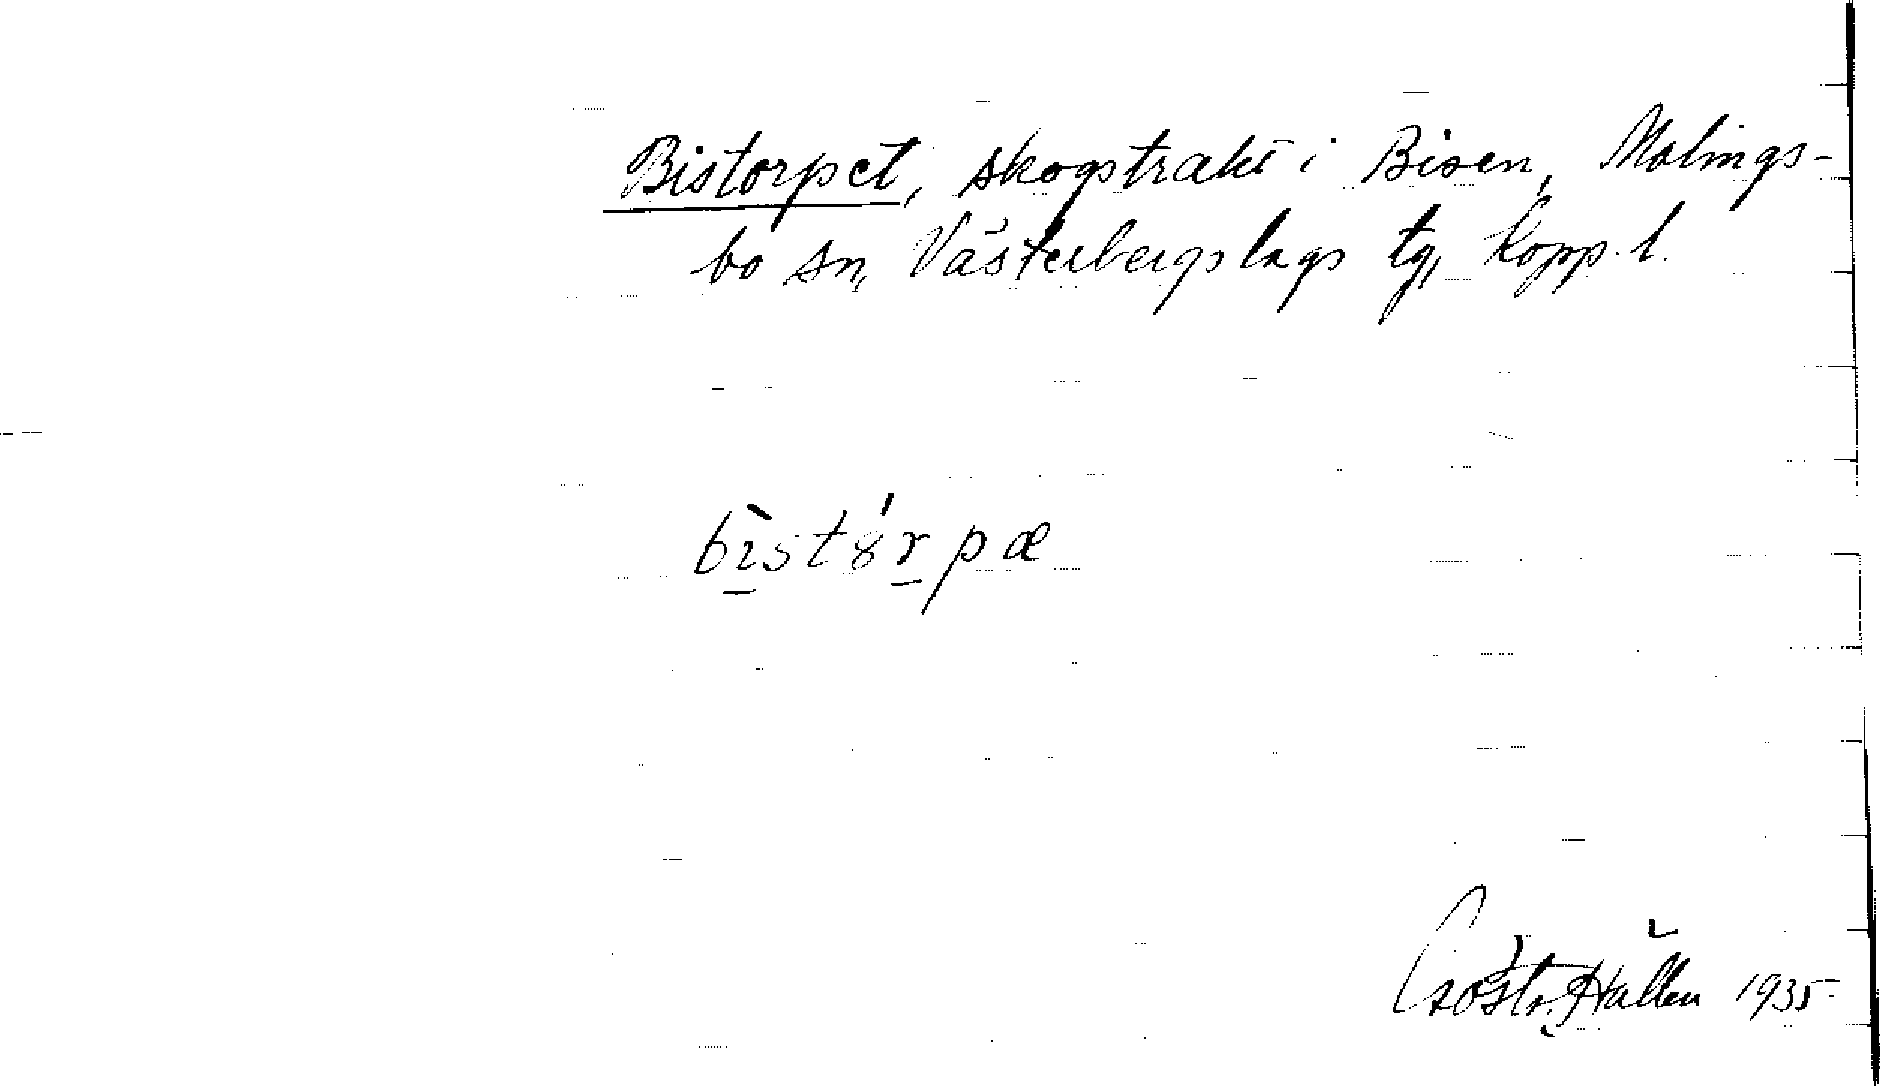 Bistorpet, skogstrakt i Bisen, Malings-
bo sn, Västerbergslags tg, Kopp. l.
bìstȣ́rpæ
Gösta Hallen 1935